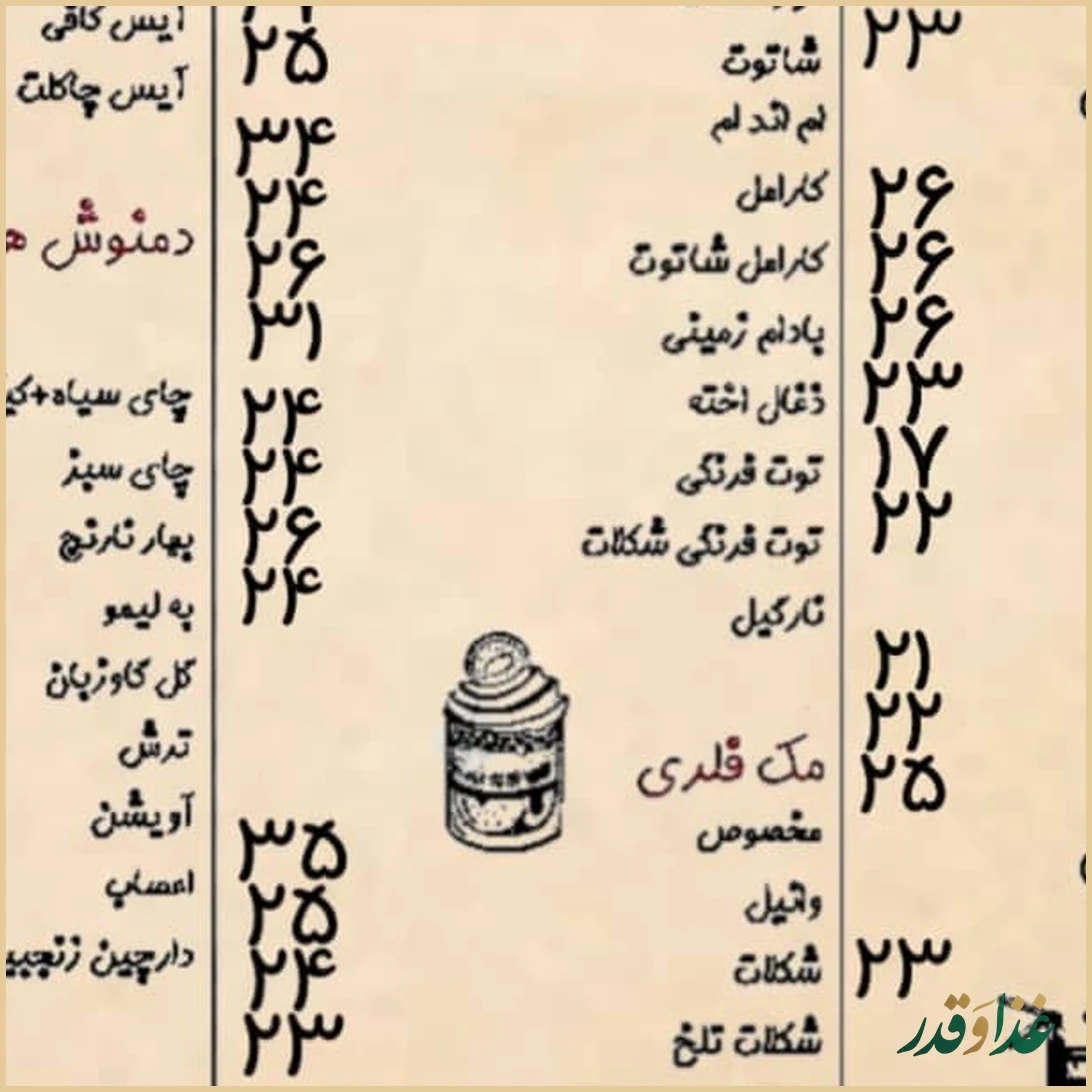 ۲۳
۲۶
۲۶
۲۶
۲۳
۱۷
۲۲
۲۱
۲۲
۲۵
۲۳
شاتوت ۲۵
ام اند ام ۳۴
کارامل ۲۴
کارامل شاتوت ۲۶
بادام زمینی ۳۱
ذغال اخته ۲۴
توت فرنگی ۲۴
توت فرنگی شکلات ۲۶
نارگیل ۲۴
مک فلری
مخصوص ۳۵
وانیل ۲۵
شکلات ۲۴
شکلات تلخ ۲۳
آیس کافی
آیس چاکلت
دمنوش
چای سیاه+
چای سبز
بهار نارنج
به لیمو
گل گاوزبان
ترش
آویشن
اعصاب
دارچین
غذا و قدر